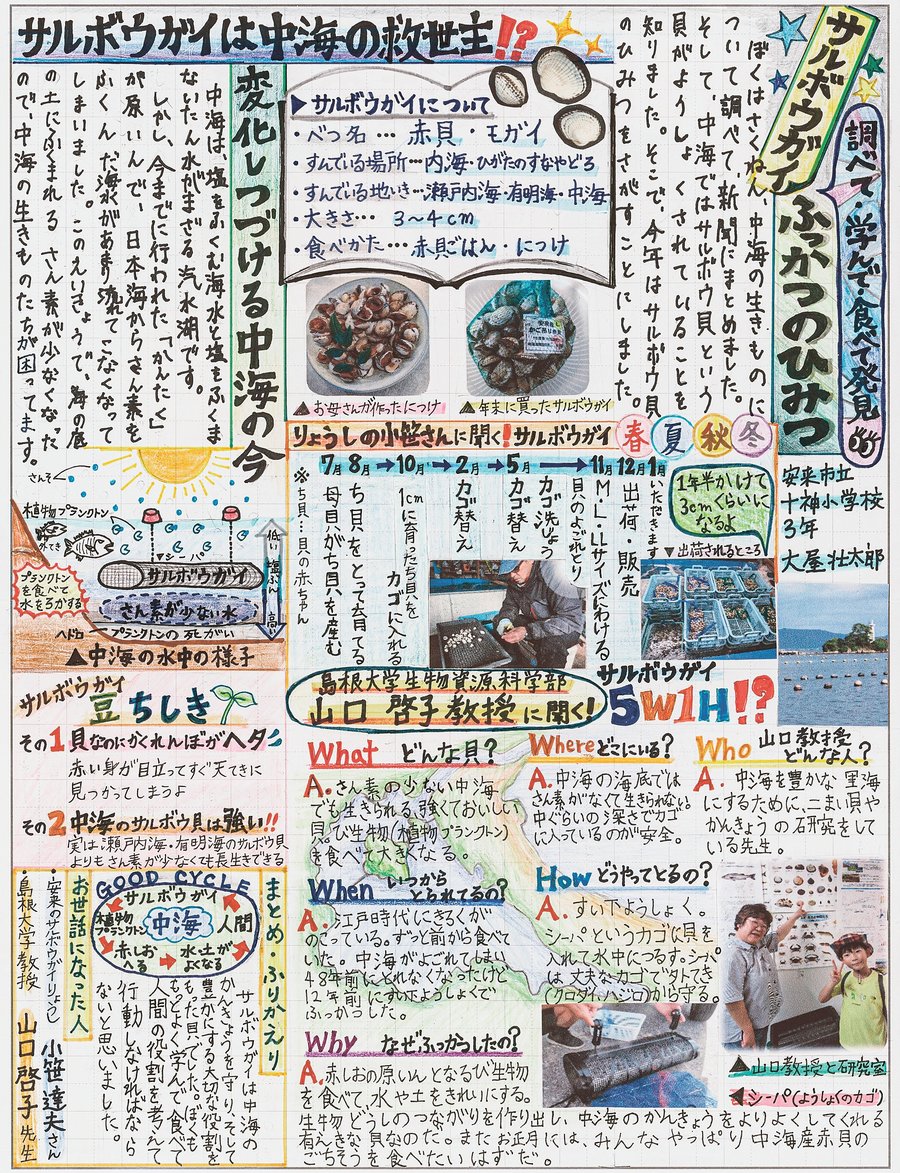 調べて・学んで・食べて発見
サルボウガイ
ふっかつのひみつ
安来市立
十神小学校
3年
大屋壮太郎
ぼくはさくねん、中海の生きものに
ついて調べて、新聞にまとめました。
そして、中海ではサルボウ貝という
貝がようしょくされていることを
知りました。そこで、今年はサルボウ貝
のひみつをさがすことにしました。
サルボウガイは中海の救世主!?
▶サルボウガイについて
・べつ名…赤貝・モガイ
・すんでいる場所…内海・ひがたのすなやどろ
・すんでいる地いき…瀬戸内海・有明海・中海
・大きさ…3〜4cm
・食べかた…赤貝ごはん・につけ
▲お母さんが作ったにつけ
▲年末に買ったサルボウガイ
変化しつづける中海の今
中海は、塩をふくむ海水と塩をふくま
ないたん水がまざる汽水湖です。
しかし、今までに行われた「かんたく」
が原いんで、日本海からさん素を
ふくんだ海水があまり流れてこなくなって
しまいました。このえいきょうで、海の底
の土にふくまれるさん素が少なくなった
ので、中海の生きものたちが困ってます。
さんそ
植物プランクトン
外てき
プランクトン
を食べて
水をろかする
シーパ
サルボウガイ
さん素が少ない水
ヘドロ
プランクトンの死がい
低い
塩ぶん
高い
▲中海の水中の様子
りょうしの小笹さんに聞く!サルボウガイ
春夏秋冬
7月8月→10月→2月→5月→11月12月1月
※ち貝…貝の赤ちゃん
母貝がち貝を産む
ち貝をとって育てる
1cmに育ったち貝を
カゴに入れる
カゴ替え
カゴ替え
カゴ洗しょう
貝のよごれとり
M・L・LLサイズにわける
出荷・販売
いただきます
1年半かけて
3cmくらいに
なるよ
▼出荷されるところ
サルボウガイ
豆ちしき
その1貝なのにかくれんぼがヘタ
赤い身が目立ってすぐ天てきに
見つかってしまうよ
その2中海のサルボウ貝は強い!!
実は瀬戸内海・有明海のサルボウ貝
よりもさん素が少なくても長生きできる
島根大学生物資源科学部
山口 啓子教授に聞く!
サルボウガイ
5W1H!?
What どんな貝?
A.さん素の少ない中海
でも生きられる、強くておいしい
貝。び生物(植物プランクトン)
を食べて大きくなる。
Where どこにいる?
A.中海の海底では
さん素がなくて生きられない。
中ぐらいの深さでカゴ
に入っているのが安全。
Who 山口教授
どんな人?
A.中海を豊かな里海
にするために、二まい貝や
かんきょうの研究をして
いる先生。
When いつから
とられてるの?
A.江戸時代にきろくが
のこっている。ずっと前から食べて
いた。中海がよごれてしまい
48年前にとれなくなったけど
12年前にすい下ようしょくで
ふっかつした。
How どうやってとるの?
A.すい下ようしょく。
シーパというカゴに貝を
入れて水中につるす。シーパ
は丈夫なカゴで外てき
(クロダイ、ハジロ)から守る。
Why なぜふっかつしたの?
A.赤しおの原いんとなるび生物
を食べて、水や土をきれいにする。
生物どうしのつながりを作り出し、中海のかんきょうをよりよくしてくれる
有えきな貝なのだ。またお正月には、みんなやっぱり中海産赤貝の
ごちそうを食べたいはずだ。
▲山口教授と研究室
◀シーパ(ようしょくのカゴ)
まとめ・ふりかえり
GOOD CYCLE
サルボウガイ
植物
プランクトン
中海
人間
赤しお
へる
水・土が
よくなる
サルボウガイは中海の
かんきょうを守り、そして
豊かにする大切な役割を
もった貝でした。ぼくも
もっとよく学んで食べて
人間の役割を考えて
行動しなければなら
ないと思いました。
お世話になった人
・安来のサルボウガイりょうし
小笹達夫さん
・島根大学教授
山口啓子先生